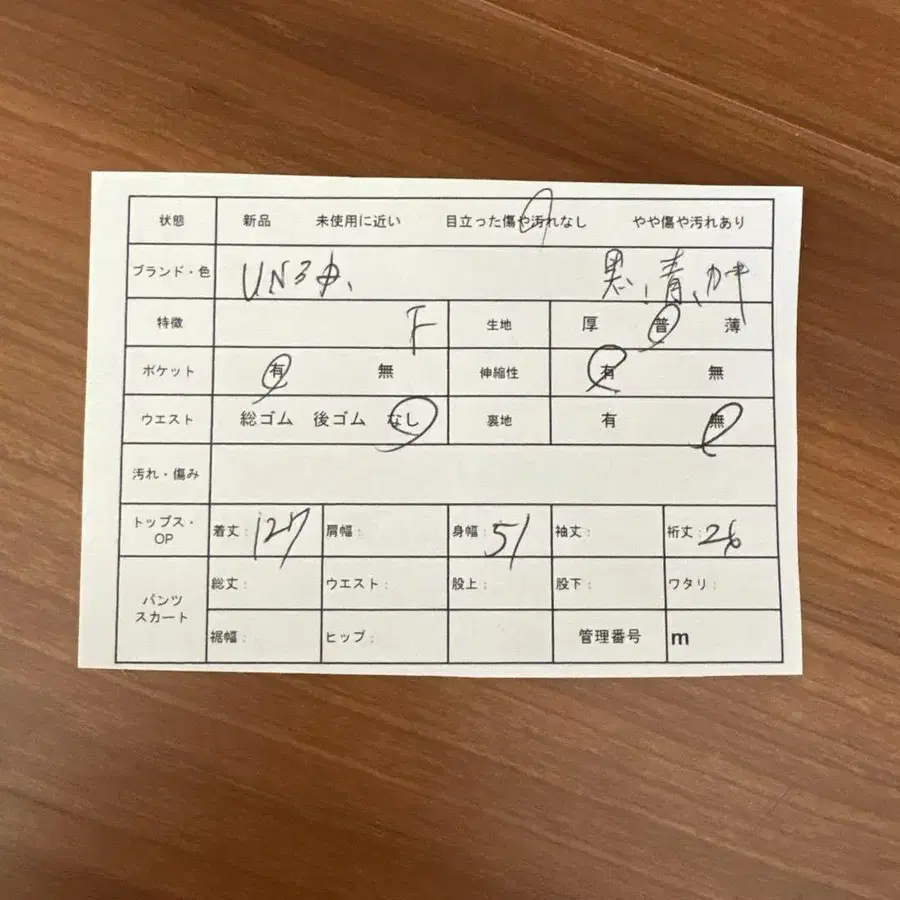 状態 新品 未使用に近い 目立った傷や汚れなし やや傷や汚れあり
ブランド・色 黒、青、カーキ
特徴 F 生地 厚 普 薄
ポケット 有 無 伸縮性 有 無
ウエスト 総ゴム 後ゴム なし 裏地 有 無
汚れ・傷み
トップス・OP 着丈: 127 肩幅: 身幅: 51 袖丈: 裄丈: 26
パンツ スカート 総丈: ウエスト: 股上: 股下: ワタリ:
裾幅: ヒップ: 管理番号 m